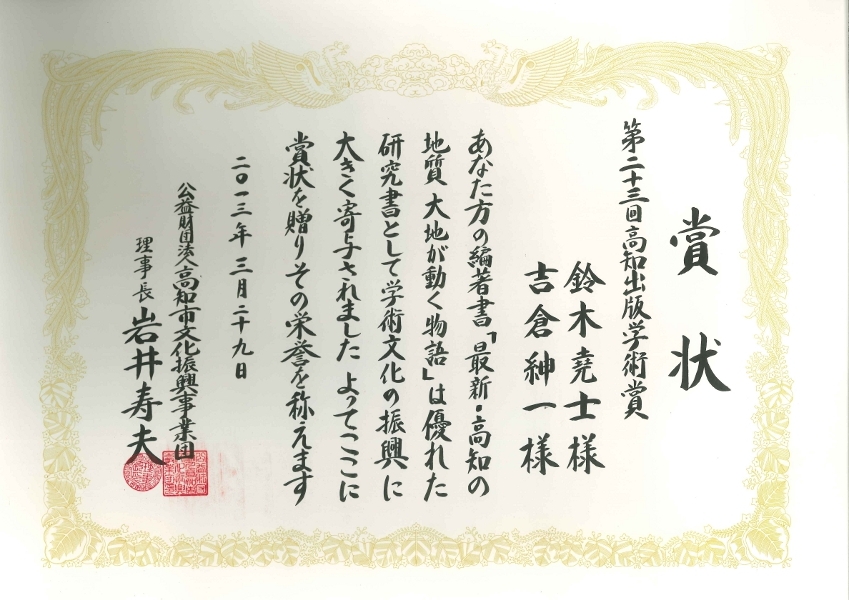 賞状
第二十三回高知出版学術賞
鈴木堯士様
吉倉紳一様
あなた方の編著書「最新・高知の
地質 大地が動く物語」は優れた
研究書として学術文化の振興に
大きく寄与されました よってここに
賞状を贈りその栄誉を称えます
二〇一三年三月二十九日
公益財団法人高知市文化振興事業団
理事長 岩井寿夫